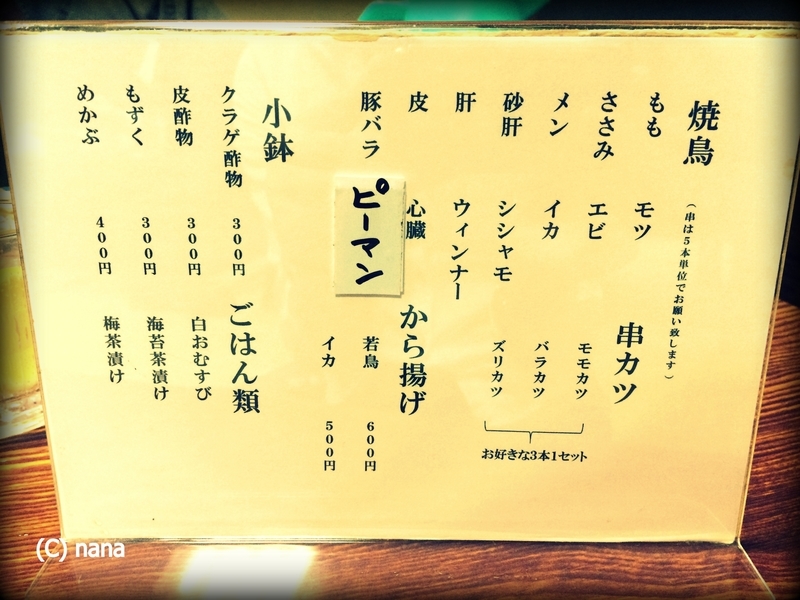 焼鳥
(串は5本単位でお願い致します)
もも
ささみ
メン
砂肝
肝
皮
豚バラ
モツ
エビ
イカ
シシャモ
ウィンナー
心臓
ピーマン
串カツ
モモカツ
バラカツ
ズリカツ
お好きな3本1セット
から揚げ
若鳥 600円
イカ 500円
小鉢
クラゲ酢物 300円
皮酢物 300円
もずく 300円
めかぶ 400円
ごはん類
白おむすび
海苔茶漬け
梅茶漬け
(C) nana